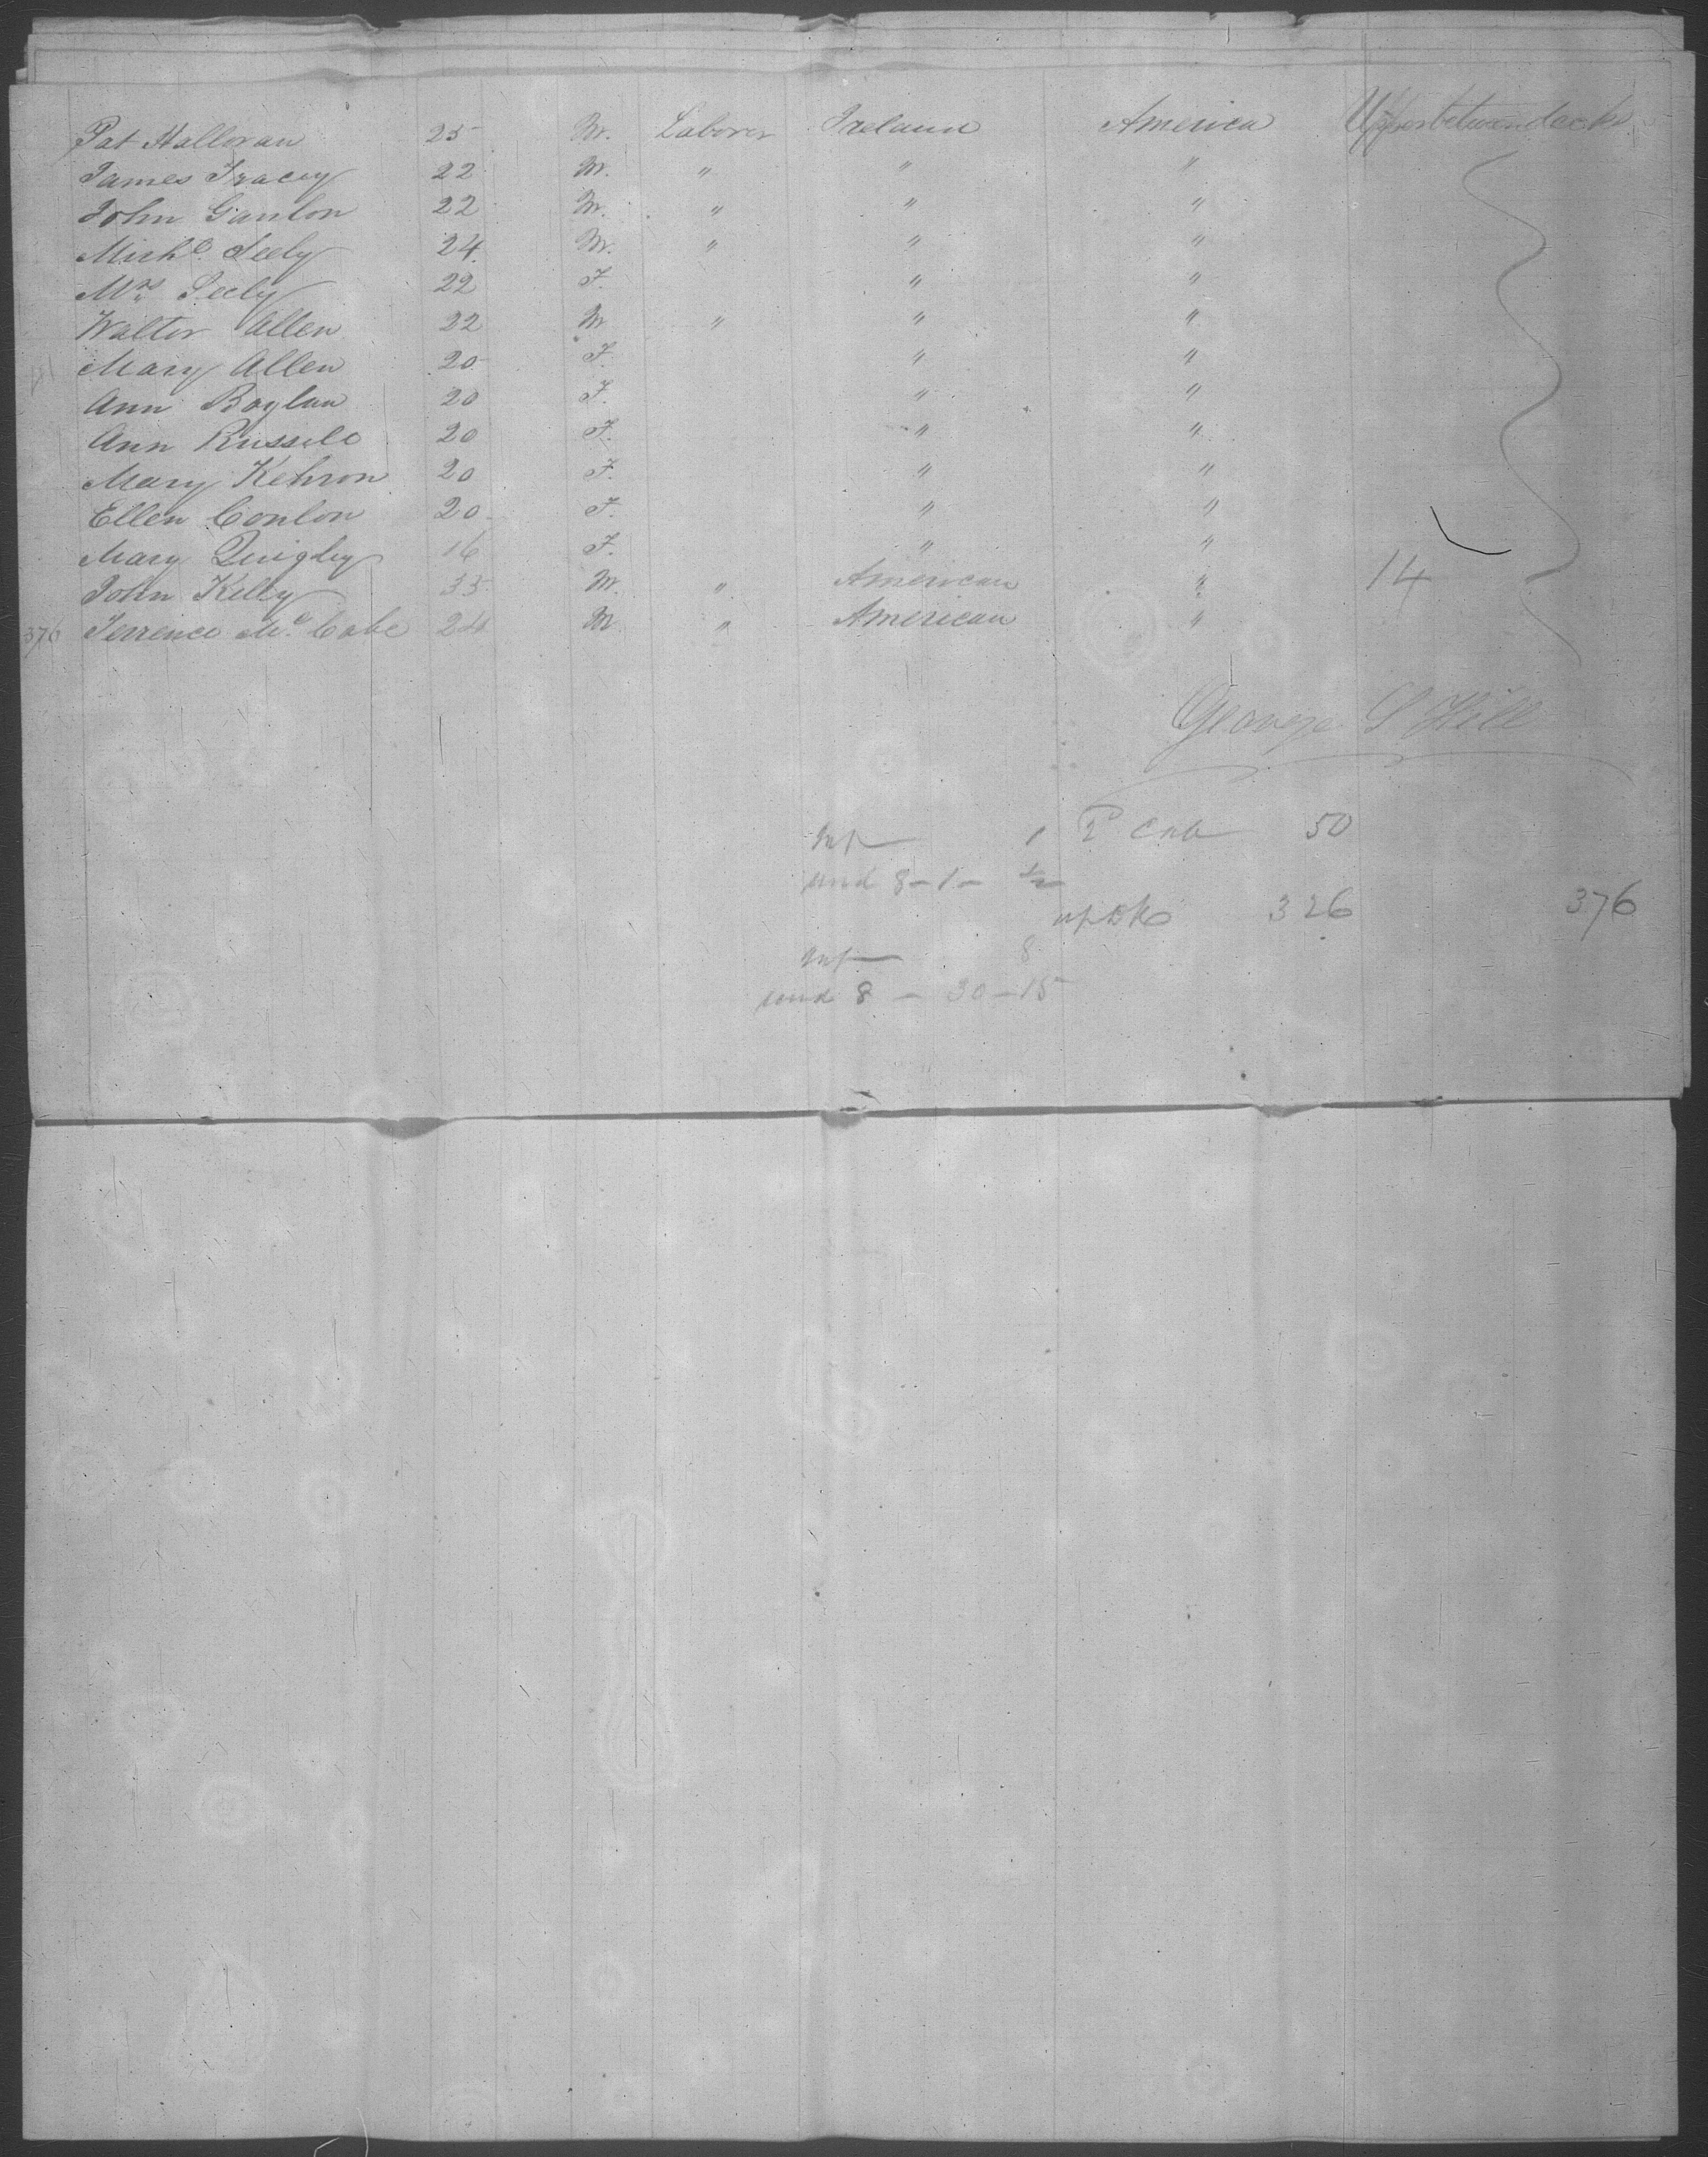 Pat Halloran 25 M. Laborer Ireland America Upperbetweendecks
James Tracey 22 M. " " "
John Ganlon 22 M. " " "
Michl. Seely 24. M. " " "
Mrs Seely 22 F. " "
Walter Allen 22 M " " "
Mary Allen 20 F. " "
Ann Boylan 20 F. " "
Ann Russell 20 F. " "
Mary Kehron 20 F. " "
Ellen Conlon 20 F. " "
Mary Quigley 16 F. " "
John Kelly 33 M. " American " 14
376 Terrence McCabe 24 M " American "
George S Hill
Inf 1 2 Cab 50
und 8-1- ½
up Dk 326 376
Inf 8
und 8 - 30-15